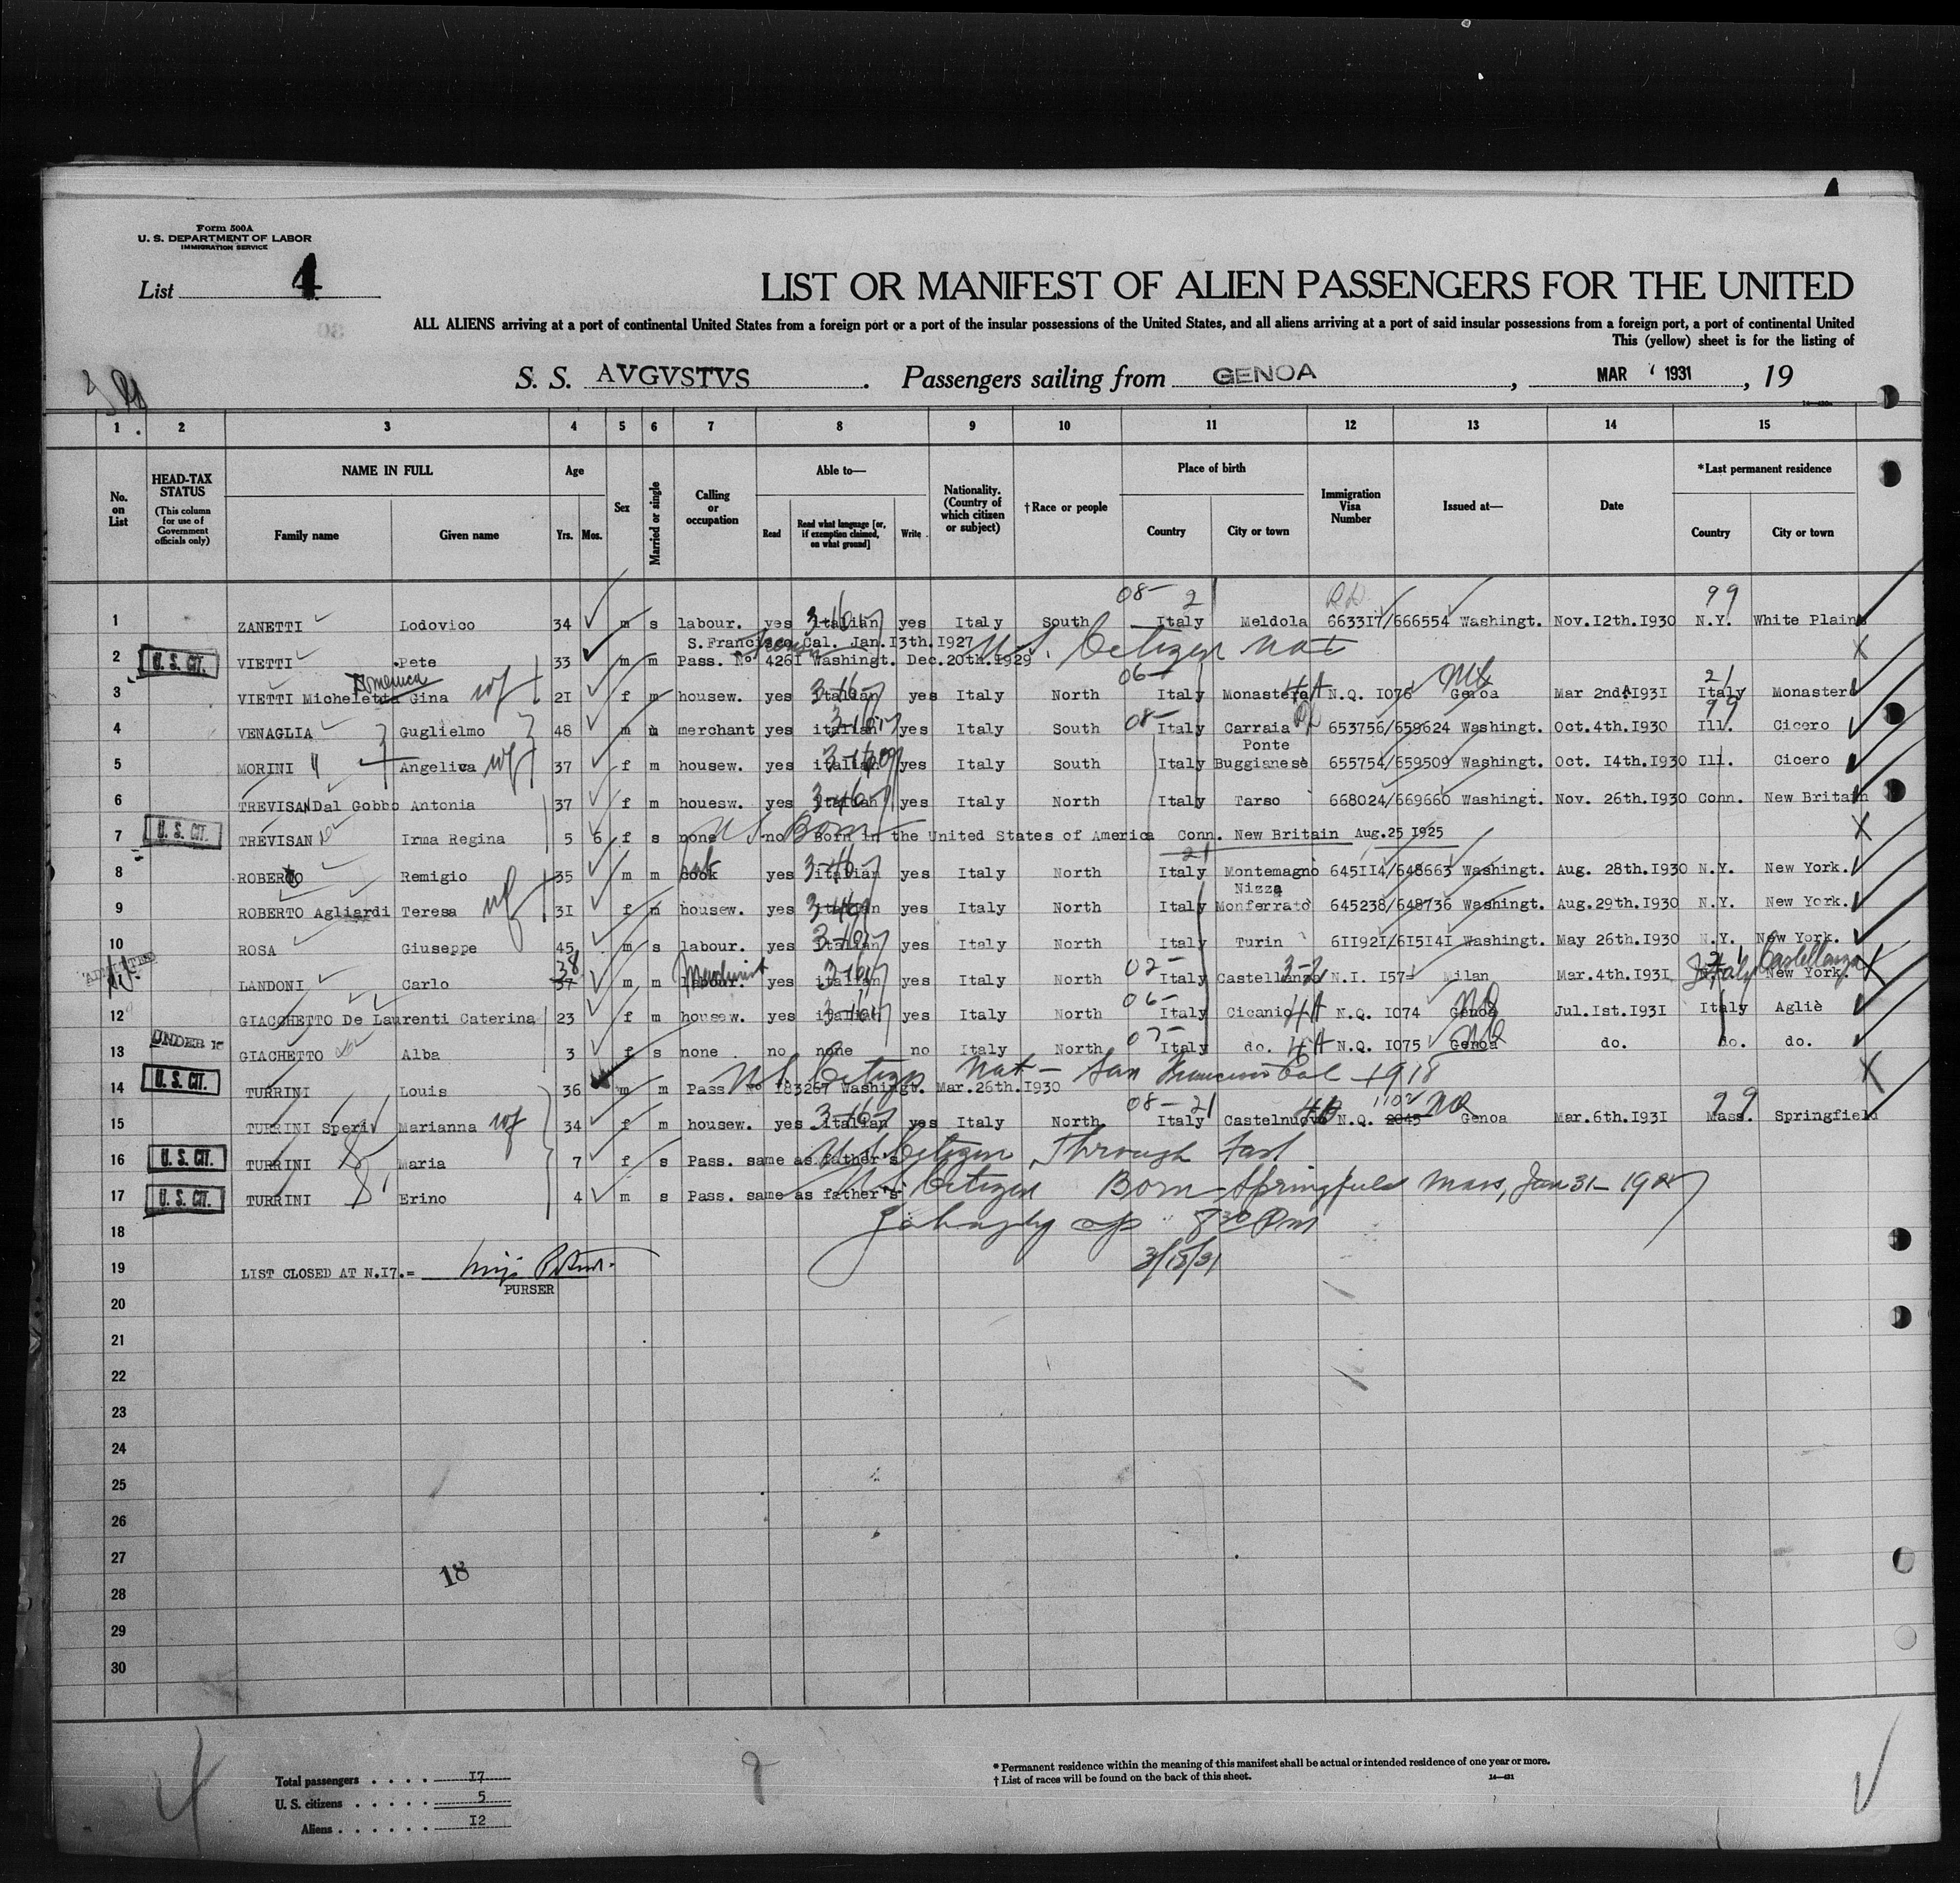 Form 500A
U. S. DEPARTMENT OF LABOR
IMMIGRATION SERVICE
List 4
LIST OR MANIFEST OF ALIEN PASSENGERS FOR THE UNITED
ALL ALIENS arriving at a port of continental United States from a foreign port or a port of the insular possessions of the United States, and all aliens arriving at a port of said insular possessions from a foreign port, a port of continental United
This (yellow) sheet is for the listing of
S. S. AVGVSTVS . Passengers sailing from GENOA , MAR 7 1931 , 19
1 2 3 4 5 6 7 8 9 10 11 12 13 14 15
No. on List
HEAD-TAX STATUS (This column for use of Government officials only)
NAME IN FULL Family name Given name
Age Yrs. Mos.
Sex
Married or single
Calling or occupation
Able to— Read Read what language [or, if exemption claimed, on what ground] Write
Nationality. (Country of which citizen or subject)
† Race or people
Place of birth Country City or town
Immigration Visa Number
Issued at—
Date
*Last permanent residence Country City or town
08- 2 99
1 ZANETTI Lodovico 34 m s labour. yes italian yes Italy South Italy Meldola 663317/666554 Washingt. Nov.12th.1930 N.Y. White Plains
S.Francisco Cal. Jan.13th.1927
2 U. S. CIT. VIETTI Pete 33 m m Pass. No 4261 Washingt. Dec.20th.1929 U.S. Citizen Nat
Domenica 06- 21
3 VIETTI Micheletta Gina wf 21 f m housew. yes italian yes Italy North Italy Monastero N.Q. 1076 Genoa Mar 2nd 1931 Italy Monastero
08- 99
4 VENAGLIA Guglielmo 48 m m merchant yes italian yes Italy South Italy Carraia 653756/659624 Washingt. Oct.4th.1930 Ill. Cicero
5 MORINI Angelica wf 37 f m housew. yes italian yes Italy South Italy Ponte Buggianese 655754/659509 Washingt. Oct. 14th.1930 Ill. Cicero
6 TREVISAN Dal Gobbo Antonia 37 f m houesw. yes italian yes Italy North Italy Tarso 668024/669660 Washingt. Nov. 26th.1930 Conn. New Britain
7 U. S. CIT. TREVISAN Irma Regina 5 6 f s none no Born in the United States of America Conn. New Britain Aug.25 1925
US Born
8 ROBERTO Remigio 35 m m cook yes italian yes Italy North Italy Montemagno 645114/648663 Washingt. Aug. 28th.1930 N.Y. New York.
9 ROBERTO Agliardi Teresa wf 31 f m housew. yes italian yes Italy North Italy Nizza Monferrato 645238/648736 Washingt. Aug.29th.1930 N.Y. New York.
10 ROSA Giuseppe 45 m s labour. yes italian yes Italy North Italy Turin 611921/615141 Washingt. May 26th.1930 N.Y. New York.
ADMITTED 38 Machinist 02- Italy Castellanza
LANDONI Carlo 37 m m labour. yes italian yes Italy North Italy Castellanza N.I. 157 Milan Mar.4th.1931 New York.
06-
12 GIACCHETTO De Laurenti Caterina 23 f m housew. yes italian yes Italy North Italy Cicanio N.Q. 1074 Genoa Jul.1st.1931 Italy Agliè
13 UNDER GIACHETTO Alba 3 f s none no none no Italy North Italy do. N.Q. 1075 Genoa do. do. do.
14 U. S. CIT. TURRINI Louis 36 m m Pass No 183267 Washingt. Mar.26th.1930
US. Citizen Nat- San Francisco Cal 1918
08-21 99
15 TURRINI Speri Marianna wf 34 f m housew. yes italian yes Italy North. Italy Castelnuovo N.Q. 2045 Genoa Mar.6th.1931 Mass. Springfield
16 U. S. CIT. TURRINI Maria 7 f s Pass. same as father's US Citizen Through Fath
17 U. S. CIT. TURRINI Erino 4 m s Pass. same as father's US Citizen Born Springfield Mass, Jan 31-
18 8 30 PM
19 LIST CLOSED AT N.17.= 3/15/31
PURSER
20
21
22
23
24
25
26
27
28
29
30
18
Total passengers . . . . 17
U. S. citizens . . . . . 5
Aliens . . . . . . 12
* Permanent residence within the meaning of this manifest shall be actual or intended residence of one year or more.
† List of races will be found on the back of this sheet.